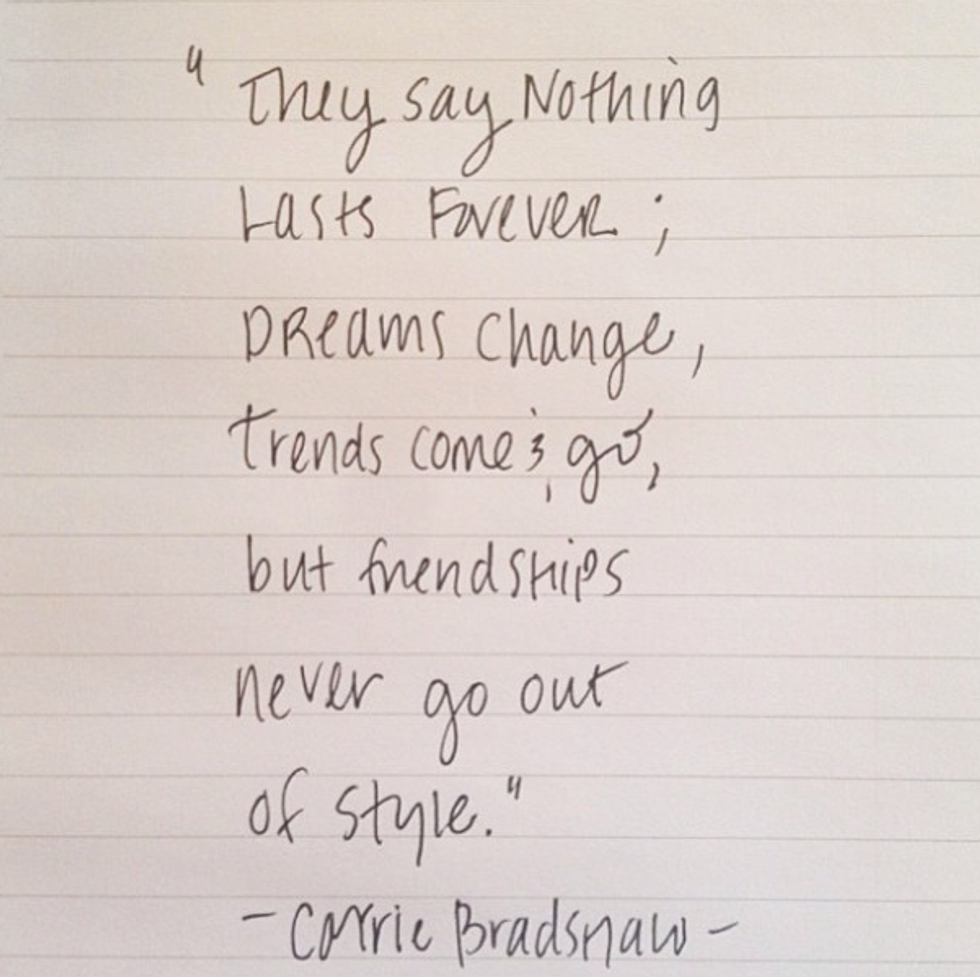 "They say Nothing
Lasts Forever;
DReams change,
trends come & go,
but friendships
never go out
of style."
- Carrie Bradshaw -